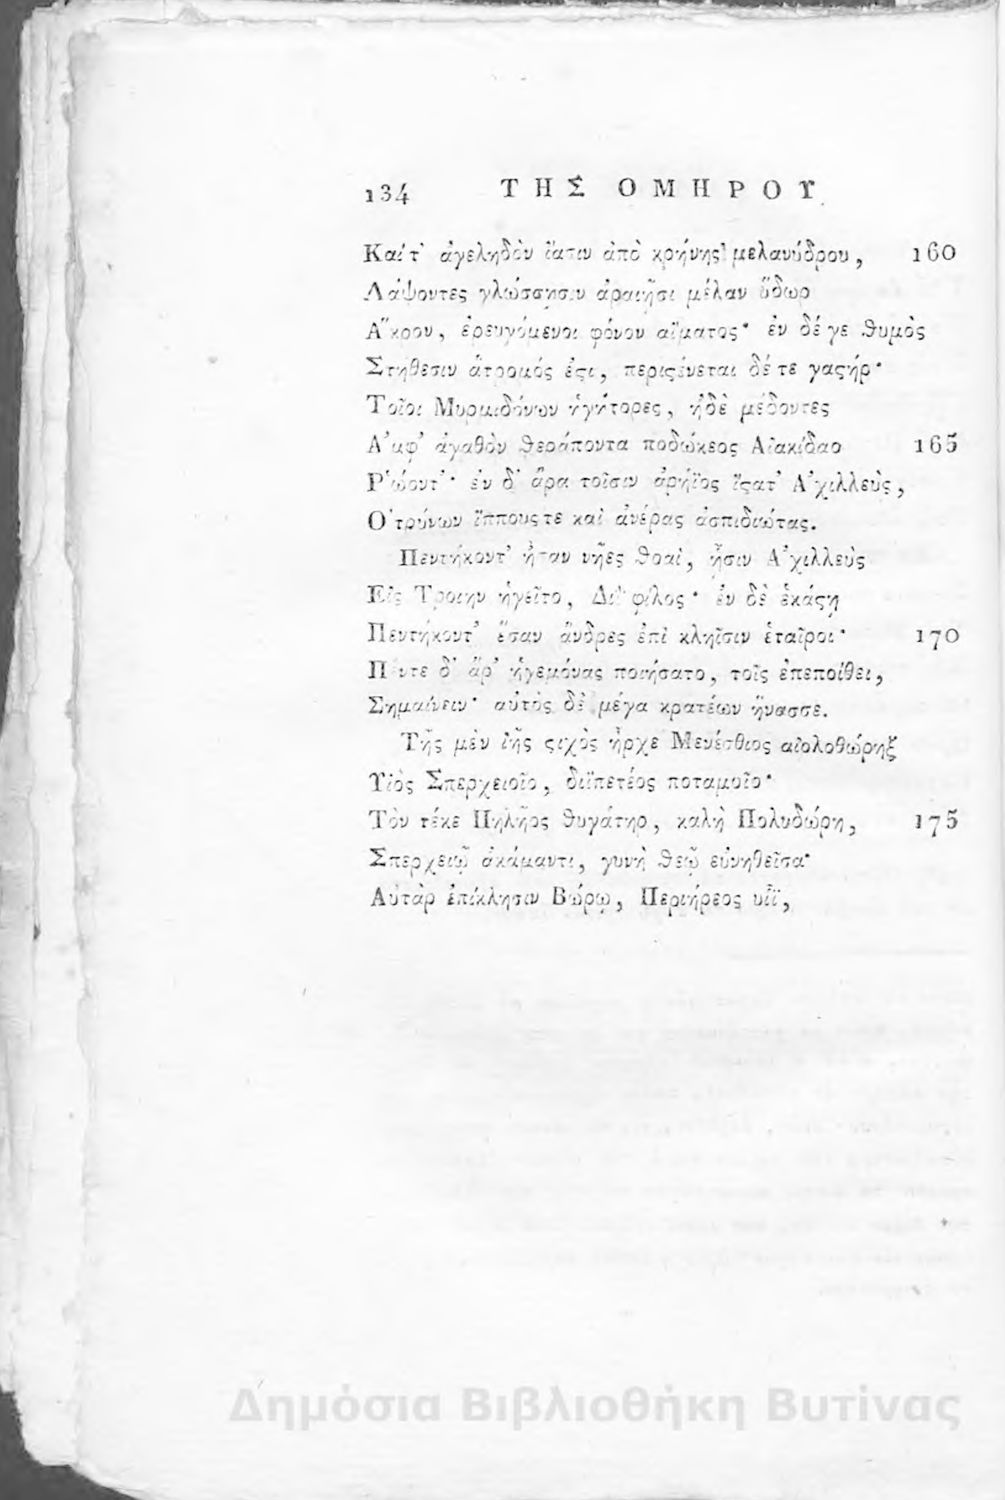 134 ΤΗΣ ΟΜΗΡΟΥ
Καί τ' ἀγεληδὸν ἴασιν ἀπὸ κρήνης μελανύδρου, 160
Λάψοντες γλώσσησιν ἀραιῇσι μέλαν ὕδωρ
Ἄκρον, ἐρευγόμενοι φόνον αἵματος· ἐν δέ γε θυμὸς
Στήθεσιν ἄτρομός ἐϛι, περιϛένεται δέ τε γαϛήρ·
Τοῖοι Μυρμιδόνων ἡγήτορες, ἠδὲ μέδοντες
Ἀμφ' ἀγαθὸν θεράποντα ποδώκεος Αἰακίδαο 165
Ῥώοντ'· ἐν δ' ἄρα τοῖσιν ἀρήϊος ἵϛατ' Ἀχιλλεὺς,
Ὀτρύνων ἵππους τε καὶ ἀνέρας ἀσπιδιώτας.
Πεντήκοντ' ἦσαν νῆες θοαὶ, ᾗσιν Ἀχιλλεὺς
Εἰς Τροίην ἡγεῖτο, Διῒ φίλος· ἐν δὲ ἑκάϛῃ
Πεντήκοντ' ἔσαν ἄνδρες ἐπὶ κληῖσιν ἑταῖροι· 170
Πέντε δ' ἄρ' ἡγεμόνας ποιήσατο, τοῖς ἐπεποίθει,
Σημαίνειν· αὐτὸς δὲ μέγα κρατέων ἤνασσε.
Τῆς μὲν ἰῆς ϛιχὸς ἦρχε Μενέσθιος αἰολοθώρηξ
Υἱὸς Σπερχειοῖο, διϊπετέος ποταμοῖο·
Τὸν τέκε Πηλῆος θυγάτηρ, καλὴ Πολυδώρη, 175
Σπερχειῷ ἀκάμαντι, γυνὴ θεῷ εὐνηθεῖσα·
Αὐτὰρ ἐπίκλησιν Βώρῳ, Περιήρεος υἷϊ,
Δημόσια Βιβλιοθήκη Βυτίνας